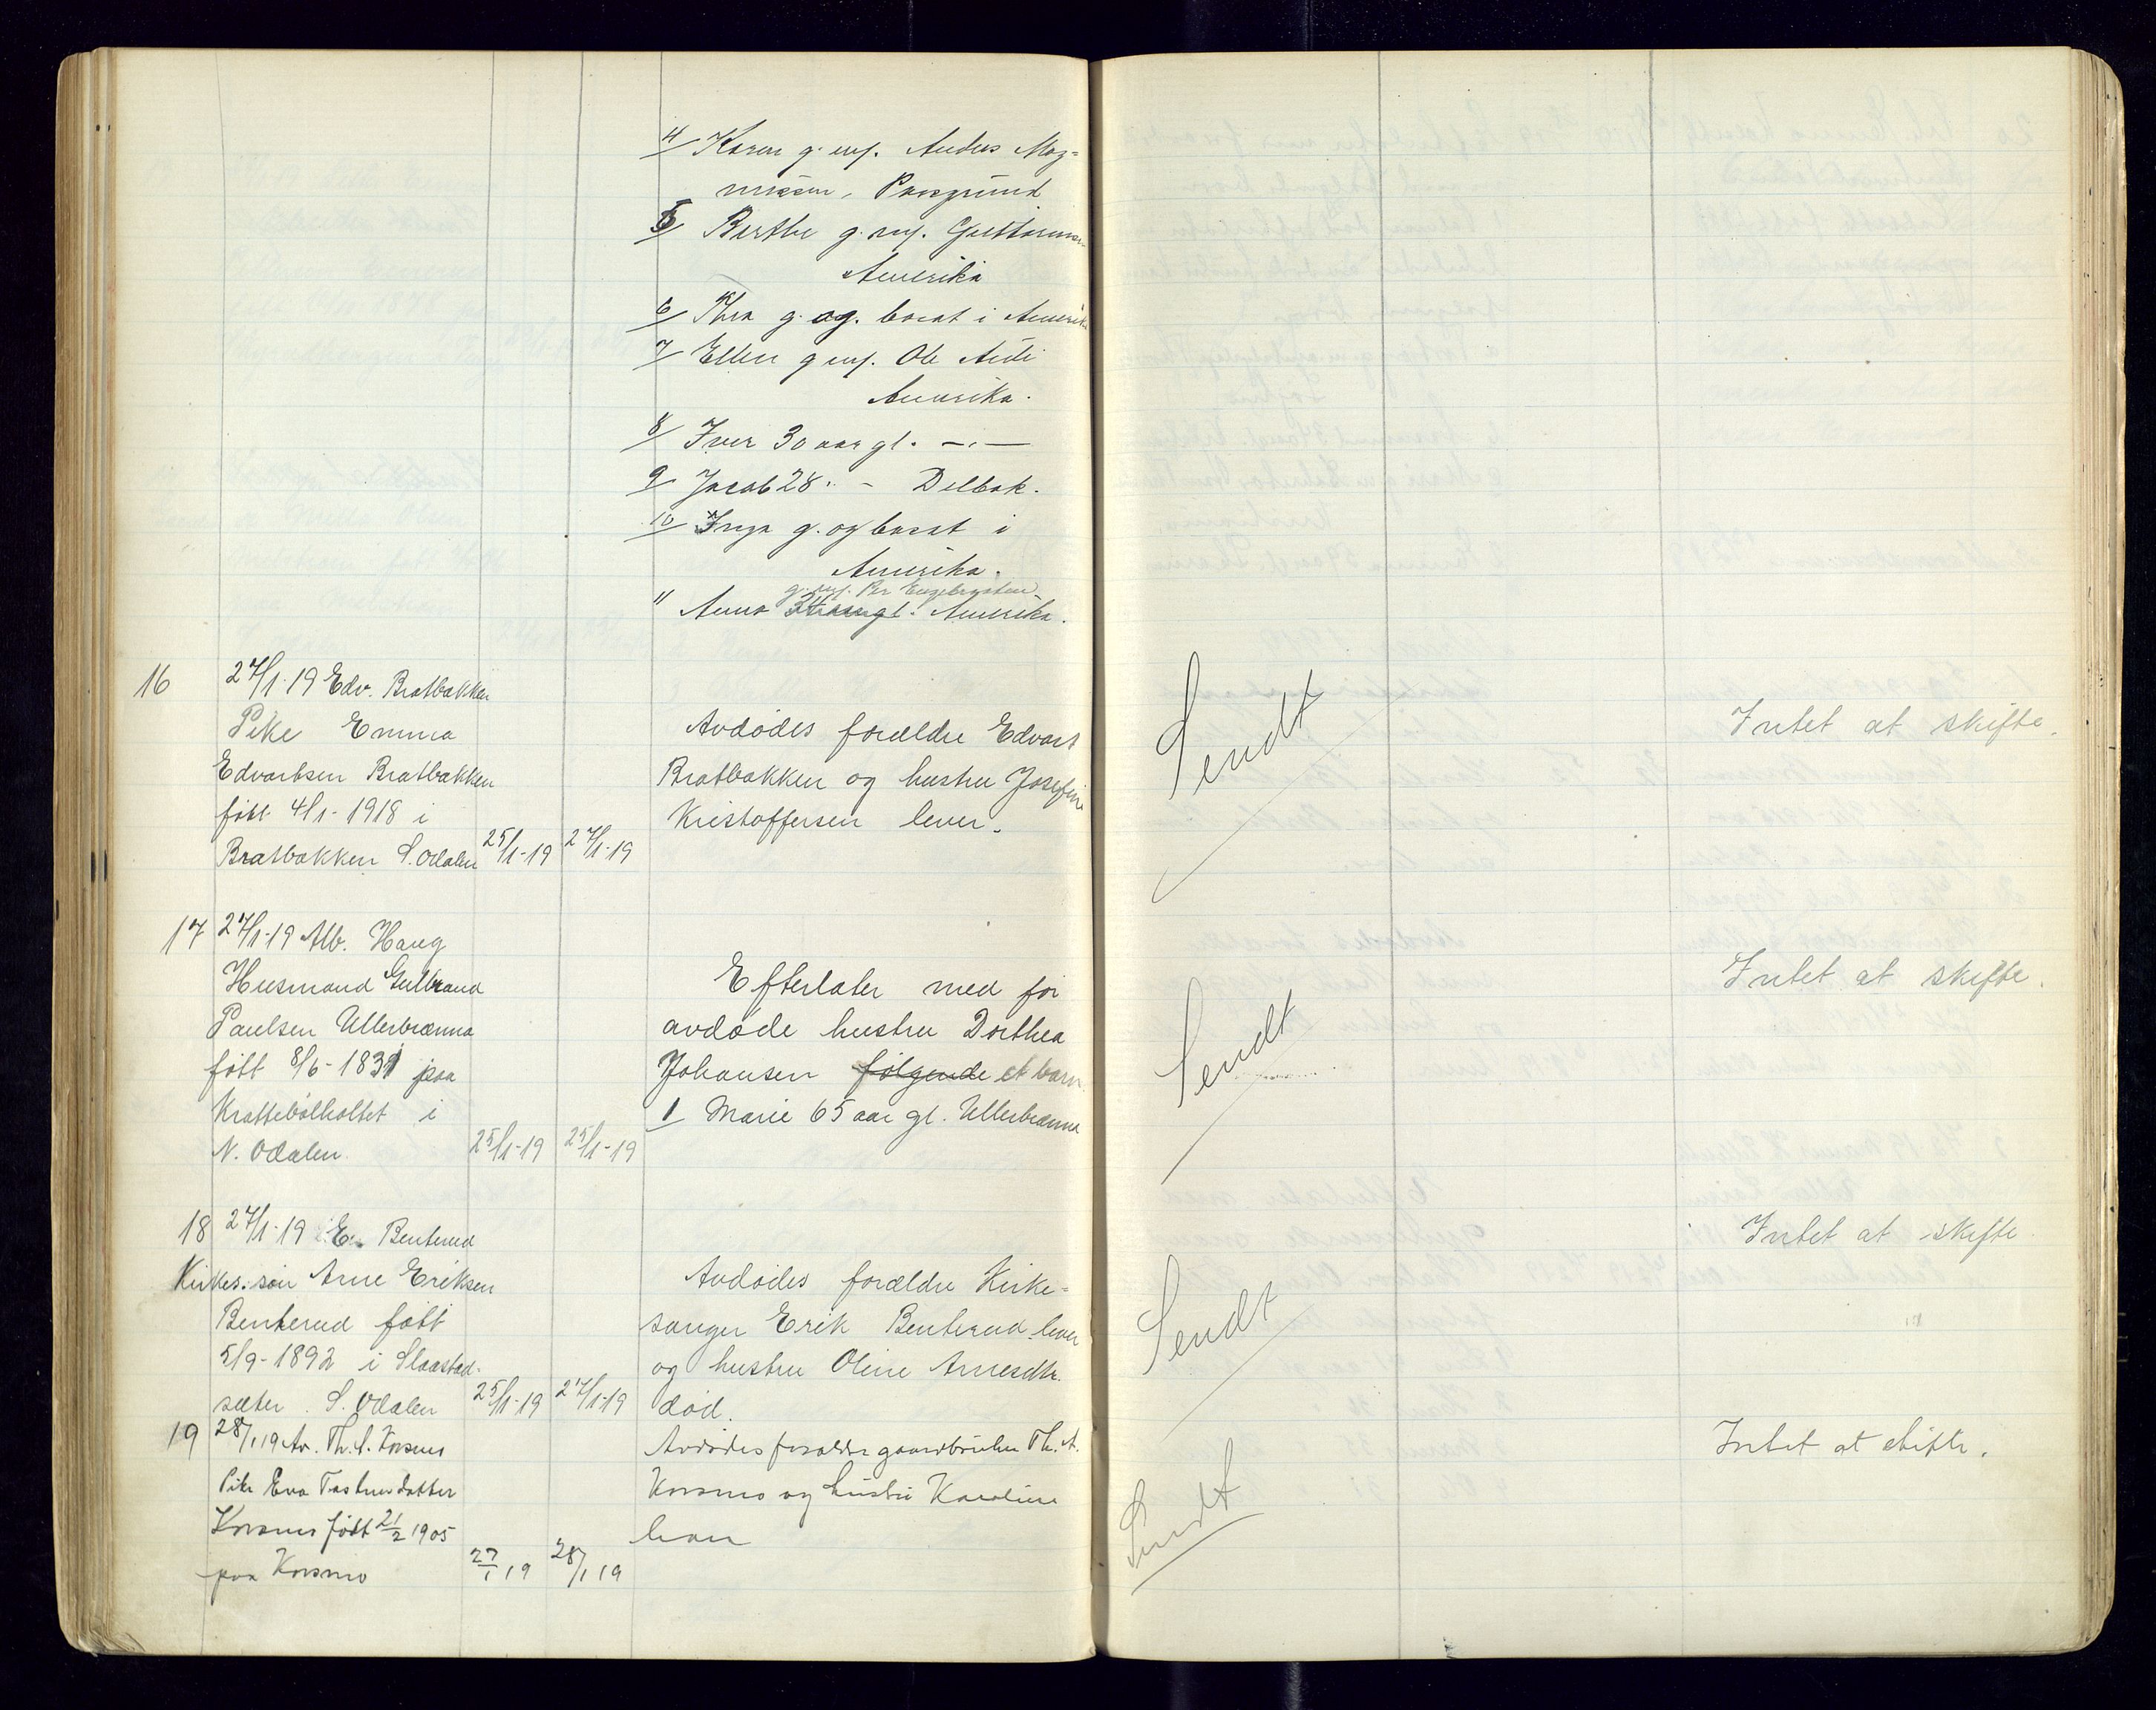 4/ Karen g. m/. Anders Mag=
nussen, Porsgrund
5/ Berthe g. m/. Guttormsen
Amerika
6/ Thea g. og. bosat i Amerika
7/ Ellen g m/. Ole Audi
Amerika.
8/ Iver 30 aar gl. -.-
9/ Jacob 28 . - Delbak.
10/ Inga g. og bosat i
Amerika.
g. m/. Per Engebretsen
11 Anna gl. Amerika.
16
27/1-19 Edv. Bratbakken
Pike Emma
Edvartsen Bratbakken
født 4/1-1918 i
Bratbakken S. Odalen 25/1-19 27/1-19
Avdødes forældre Edvart
Bratbakken og hustru Josefine
Kristoffersen lever.
Sendt
Intet at skifte.
17 27/1-19 Alb. Haug
Husmand Gulbrand
Paulsen Ullerbrænna
født 8/6-1831 paa
Krattebølholtet i
N. Odalen. 25/1-19 25/1-19
Efterlater med før
avdøde hustru Dorthea
Johansen følgende et barn
1/ Marie 65 aar gl. Ullerbrænna
Sendt
Intet at skifte.
18 27/1-19 E. Benterud
Kirkes. søn Arne Eriksen
Benterud født
5/9-1892 i Slaastad-
sæter S. Odalen 25/1-19 27/1-19
Avdødes forældre Kirke=
sanger Erik Benterud lever
og hustru Oline Arnesdtr.
død.
Sendt
Intet at skifte
19 28/1 19 Av. Th. A. Korsmo
Pike Eva Torstensdatter
Korsmo født 21/2 1905
paa Korsmo 27/1 19 28/1 19
Avdødes forældre gaardbruker Th. A.
Korsmo og hustru Karoline
lever
Sendt
Intet at skifte.